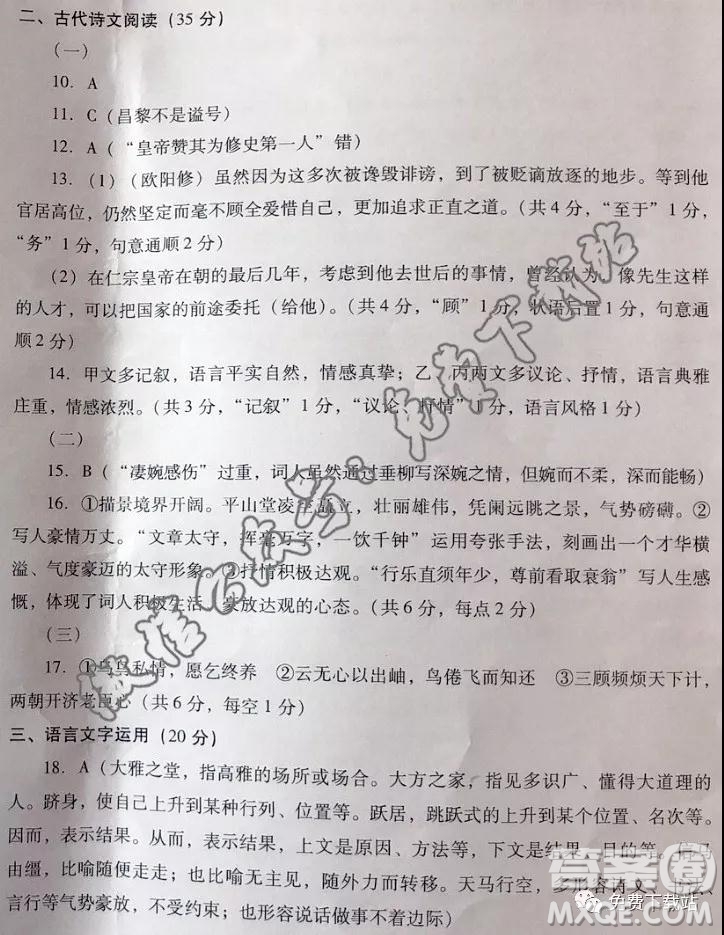 二、古代诗文阅读(35 分)
(一)
10. A
11. C(昌黎不是谥号)
12. A(“皇帝赞其为修史第一人”错)
13.(1)(欧阳修)虽然因为这多次被谗毁诽谤，到了被贬谪放逐的地步。等到他
官居高位，仍然坚定而毫不顾全爱惜自己，更加追求正直之道。(共 4 分，“至于”1 分，
“务”1 分，句意通顺 2 分)
(2)在仁宗皇帝在朝的最后几年，考虑到他去世后的事情，曾经认为，像先生这样
的人才，可以把国家的前途委托(给他)。(共 4 分，“顾”1 分，状语后置 1 分，句意通
顺 2 分)
14. 甲文多记叙，语言平实自然，情感真挚；乙、丙两文多议论、抒情，语言典雅
庄重，情感浓烈。(共 3 分，“记叙”1 分，“议论、抒情”1 分，语言风格 1 分)
(二)
15. B(“凄婉感伤”过重，词人虽然通过垂柳写深婉之情，但婉而不柔，深而能畅)
16. ①描景境界开阔。平山堂凌空矗立，壮丽雄伟，凭阑远眺之景，气势磅礴。②
写人豪情万丈。“文章太守，挥毫万字，一饮千钟”运用夸张手法，刻画出一个才华横
溢、气度豪迈的太守形象。③抒情积极达观。“行乐直须年少，尊前看取衰翁”写人生感
慨，体现了词人积极生活、豪放达观的心态。(共 6 分，每点 2 分)
(三)
17. ①乌鸟私情，愿乞终养 ②云无心以出岫，鸟倦飞而知还 ③三顾频烦天下计，
两朝开济老臣心(共 6 分，每空 1 分)
三、语言文字运用(20 分)
18. A(大雅之堂，指高雅的场所或场合。大方之家，指见多识广、懂得大道理的
人。跻身，使自己上升到某种行列、位置等。跃居，跳跃式的上升到某个位置、名次等。
因而，表示结果。从而，表示上文是原因、方法等，下文是结果、目的等。信马
由缰，比喻随便走走；也比喻无主见，随外力而转移。天马行空，多形容诗文、书法、
言行等气势豪放，不受约束；也形容说话做事不着边际)
答案圈
MXQE.COM
免费下载站